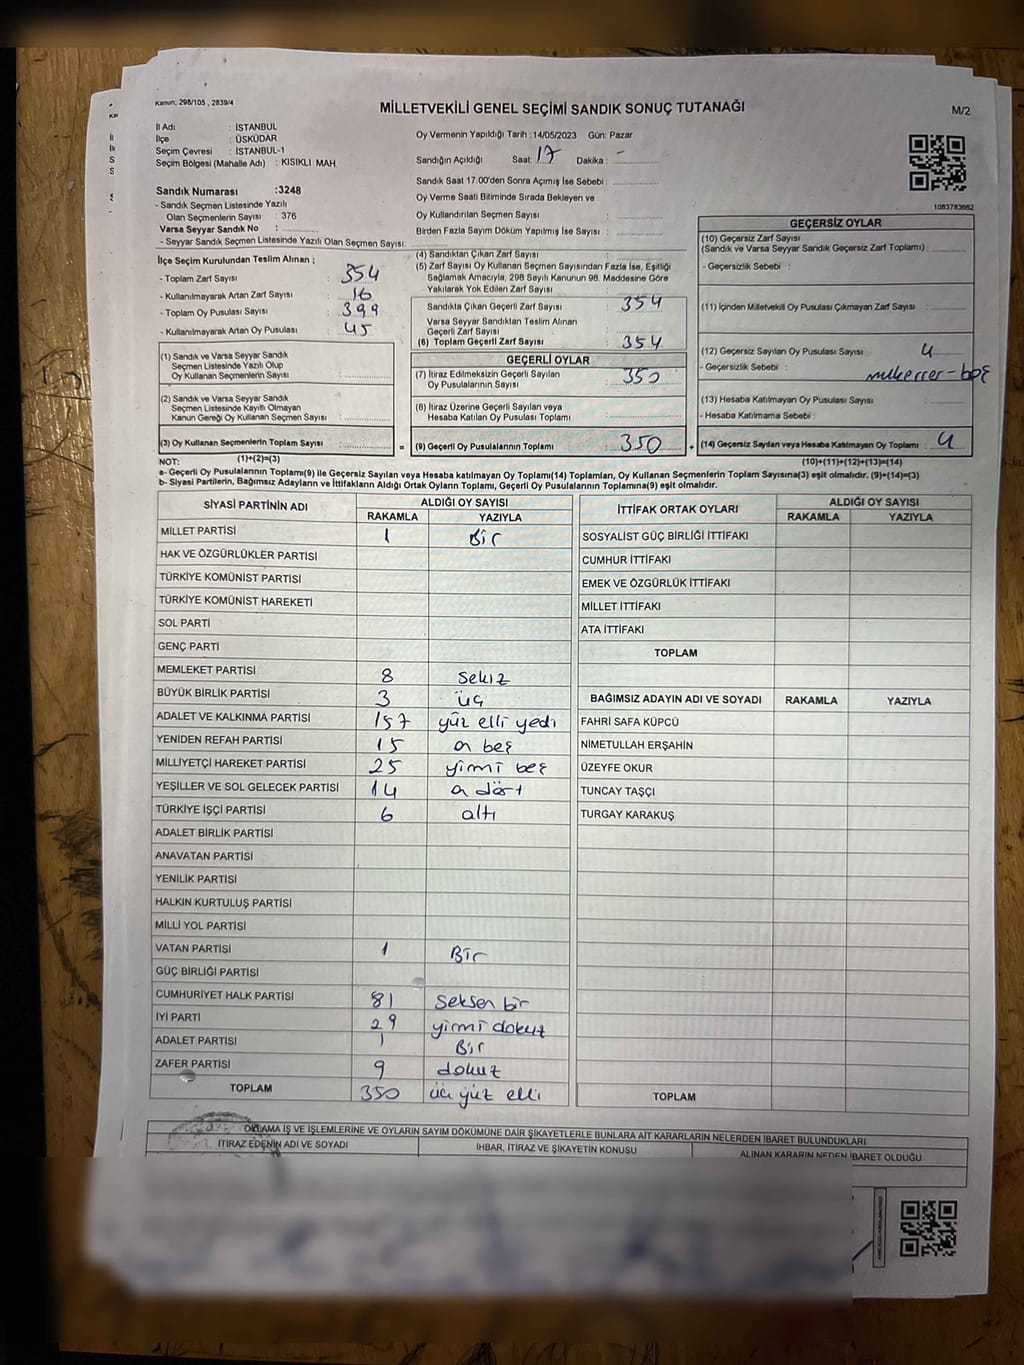 Kanun; 298/105 , 2839/4
MİLLETVEKİLİ GENEL SEÇİMİ SANDIK SONUÇ TUTANAĞI
M/2
İl Adı : İSTANBUL
İlçe : ÜSKÜDAR
Seçim Çevresi : İSTANBUL-1
Seçim Bölgesi (Mahalle Adı) : KISIKLI MAH.
Sandık Numarası :3248
- Sandık Seçmen Listesinde Yazılı
Olan Seçmenlerin Sayısı : 376
Varsa Seyyar Sandık No :
- Seyyar Sandık Seçmen Listesinde Yazılı Olan Seçmen Sayısı:
Oy Vermenin Yapıldığı Tarih :14/05/2023 Gün: Pazar
Sandığın Açıldığı Saat: 17 Dakika : -
Sandık Saat 17.00'den Sonra Açımış İse Sebebi :
Oy Verme Saati Bitiminde Sırada Bekleyen ve
Oy Kullandırılan Seçmen Sayısı :
Birden Fazla Sayım Döküm Yapılmış İse Sayısı :
1083783662
İlçe Seçim Kurulundan Teslim Alınan ;
- Toplam Zarf Sayısı : 354
- Kullanılmayarak Artan Zarf Sayısı : 16
- Toplam Oy Pusulası Sayısı : 399
- Kullanılmayarak Artan Oy Pusulası : 45
(1) Sandık ve Varsa Seyyar Sandık
Seçmen Listesinde Yazılı Olup
Oy Kullanan Seçmenlerin Sayısı :
(2) Sandık ve Varsa Seyyar Sandık
Seçmen Listesinde Kayıtlı Olmayan
Kanun Gereği Oy Kullanan Seçmen Sayısı :
(3) Oy Kullanan Seçmenlerin Toplam Sayısı :
(1)+(2)=(3)
(4) Sandıktan Çıkan Zarf Sayısı :
(5) Zarf Sayısı Oy Kullanan Seçmen Sayısından Fazla İse, Eşitliği
Sağlamak Amacıyla, 298 Sayılı Kanunun 98. Maddesine Göre
Yakılarak Yok Edilen Zarf Sayısı :
Sandıkta Çıkan Geçerli Zarf Sayısı : 354
Varsa Seyyar Sandıktan Teslim Alınan
Geçerli Zarf Sayısı :
(6) Toplam Geçerli Zarf Sayısı : 354
GEÇERLİ OYLAR
(7) İtiraz Edilmeksizin Geçerli Sayılan
Oy Pusulalarının Sayısı : 350
(8) İtiraz Üzerine Geçerli Sayılan veya
Hesaba Katılan Oy Pusulası Toplamı :
= (9) Geçerli Oy Pusulalarının Toplamı : 350 +
GEÇERSİZ OYLAR
(10) Geçersiz Zarf Sayısı
(Sandık ve Varsa Seyyar Sandık Geçersiz Zarf Toplamı) :
- Geçersizlik Sebebi :
(11) İçinden Milletvekili Oy Pusulası Çıkmayan Zarf Sayısı :
(12) Geçersiz Sayılan Oy Pusulası Sayısı : 4
- Geçersizlik Sebebi : mükerrer-boş
(13) Hesaba Katılmayan Oy Pusulası Sayısı :
- Hesaba Katılmama Sebebi :
(14) Geçersiz Sayılan veya Hesaba Katılmayan Oy Toplamı : 4
(10)+(11)+(12)+(13)=(14)
NOT:
a- Geçerli Oy Pusulalarının Toplamı(9) ile Geçersiz Sayılan veya Hesaba katılmayan Oy Toplamı(14) Toplamları, Oy Kullanan Seçmenlerin Toplam Sayısına(3) eşit olmalıdır. (9)+(14)=(3)
b- Siyasi Partilerin, Bağımsız Adayların ve İttifakların Aldığı Ortak Oyların Toplamı, Geçerli Oy Pusulalarının Toplamına(9) eşit olmalıdır.
SİYASİ PARTİNİN ADI ALDIĞI OY SAYISI
RAKAMLA YAZIYLA
MİLLET PARTİSİ 1 Bir
HAK VE ÖZGÜRLÜKLER PARTİSİ
TÜRKİYE KOMÜNİST PARTİSİ
TÜRKİYE KOMÜNİST HAREKETİ
SOL PARTİ
GENÇ PARTİ
MEMLEKET PARTİSİ 8 Sekiz
BÜYÜK BİRLİK PARTİSİ 3 üç
ADALET VE KALKINMA PARTİSİ 157 yüz elli yedi
YENİDEN REFAH PARTİSİ 15 on beş
MİLLİYETÇİ HAREKET PARTİSİ 25 yirmi beş
YEŞİLLER VE SOL GELECEK PARTİSİ 14 on dört
TÜRKİYE İŞÇİ PARTİSİ 6 altı
ADALET BİRLİK PARTİSİ
ANAVATAN PARTİSİ
YENİLİK PARTİSİ
HALKIN KURTULUŞ PARTİSİ
MİLLİ YOL PARTİSİ
VATAN PARTİSİ 1 Bir
GÜÇ BİRLİĞİ PARTİSİ
CUMHURİYET HALK PARTİSİ 81 Seksen bir
İYİ PARTİ 29 yirmi dokuz
ADALET PARTİSİ 1 Bir
ZAFER PARTİSİ 9 dokuz
TOPLAM 350 üç yüz elli
İTTİFAK ORTAK OYLARI ALDIĞI OY SAYISI
RAKAMLA YAZIYLA
SOSYALİST GÜÇ BİRLİĞİ İTTİFAKI
CUMHUR İTTİFAKI
EMEK VE ÖZGÜRLÜK İTTİFAKI
MİLLET İTTİFAKI
ATA İTTİFAKI
TOPLAM
BAĞIMSIZ ADAYIN ADI VE SOYADI RAKAMLA YAZIYLA
FAHRİ SAFA KÜPCÜ
NİMETULLAH ERŞAHİN
ÜZEYFE OKUR
TUNCAY TAŞÇI
TURGAY KARAKUŞ
TOPLAM
OYLAMA İŞ VE İŞLEMLERİNE VE OYLARIN SAYIM DÖKÜMÜNE DAİR ŞİKAYETLERLE BUNLARA AİT KARARLARIN NELERDEN İBARET BULUNDUKLARI
İTİRAZ EDENİN ADI VE SOYADI İHBAR, İTİRAZ VE ŞİKAYETİN KONUSU ALINAN KARARIN NEDEN İBARET OLDUĞU